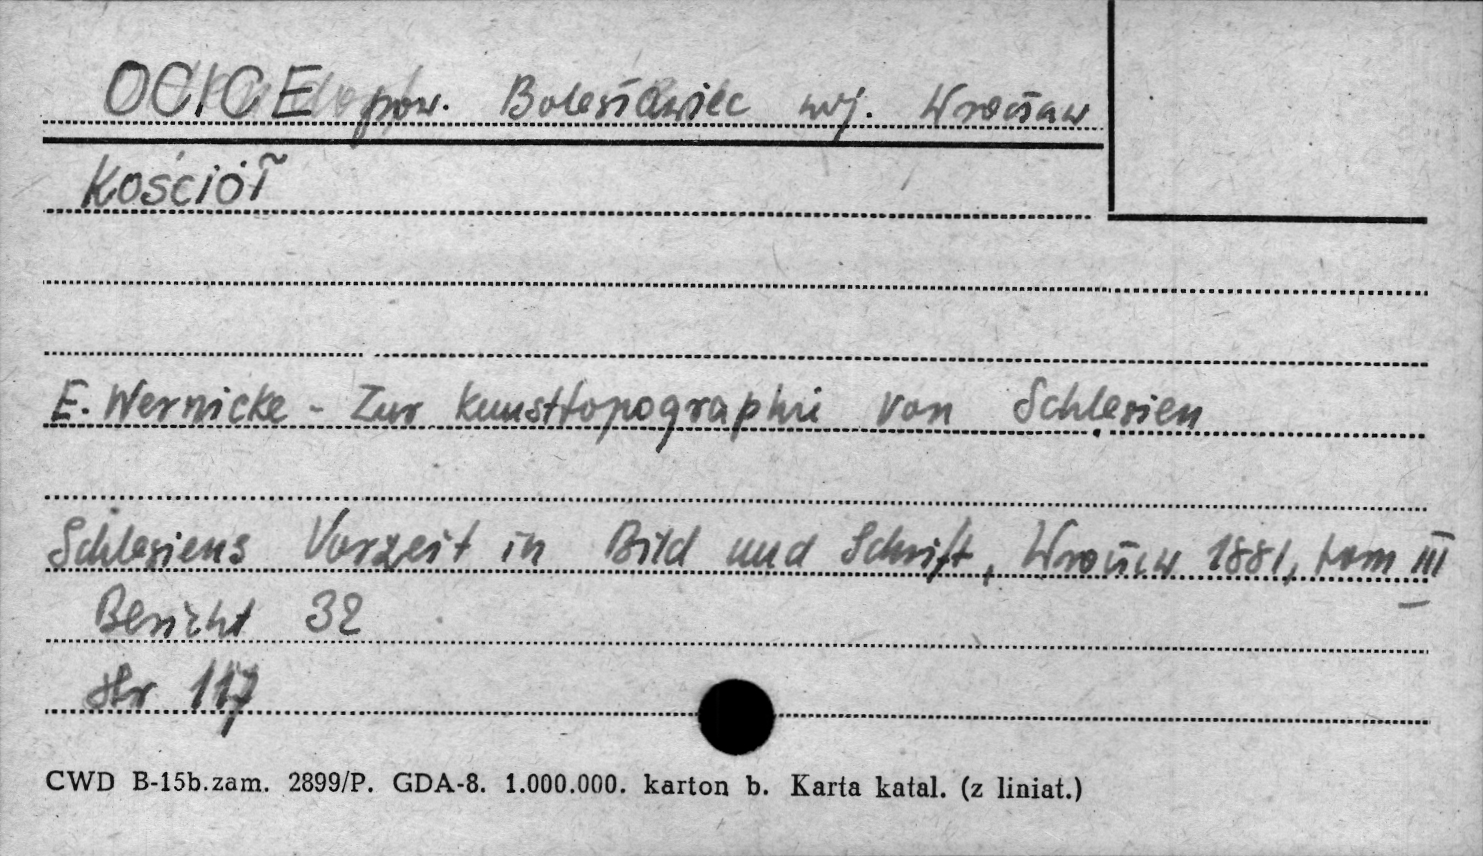 OCICE pow. Bolesławiec woj. Wrocław
Kościół
E. Wernicke - Zur Kunsttopographie von Schlesien
Schlesiens Vorzeit in Bild und Schrift, Wrocław 1881, tom III
Bericht 32
str 117
CWD B-15b.zam. 2899/P. GDA-8. 1.000.000. karton b. Karta katal. (z liniat.)